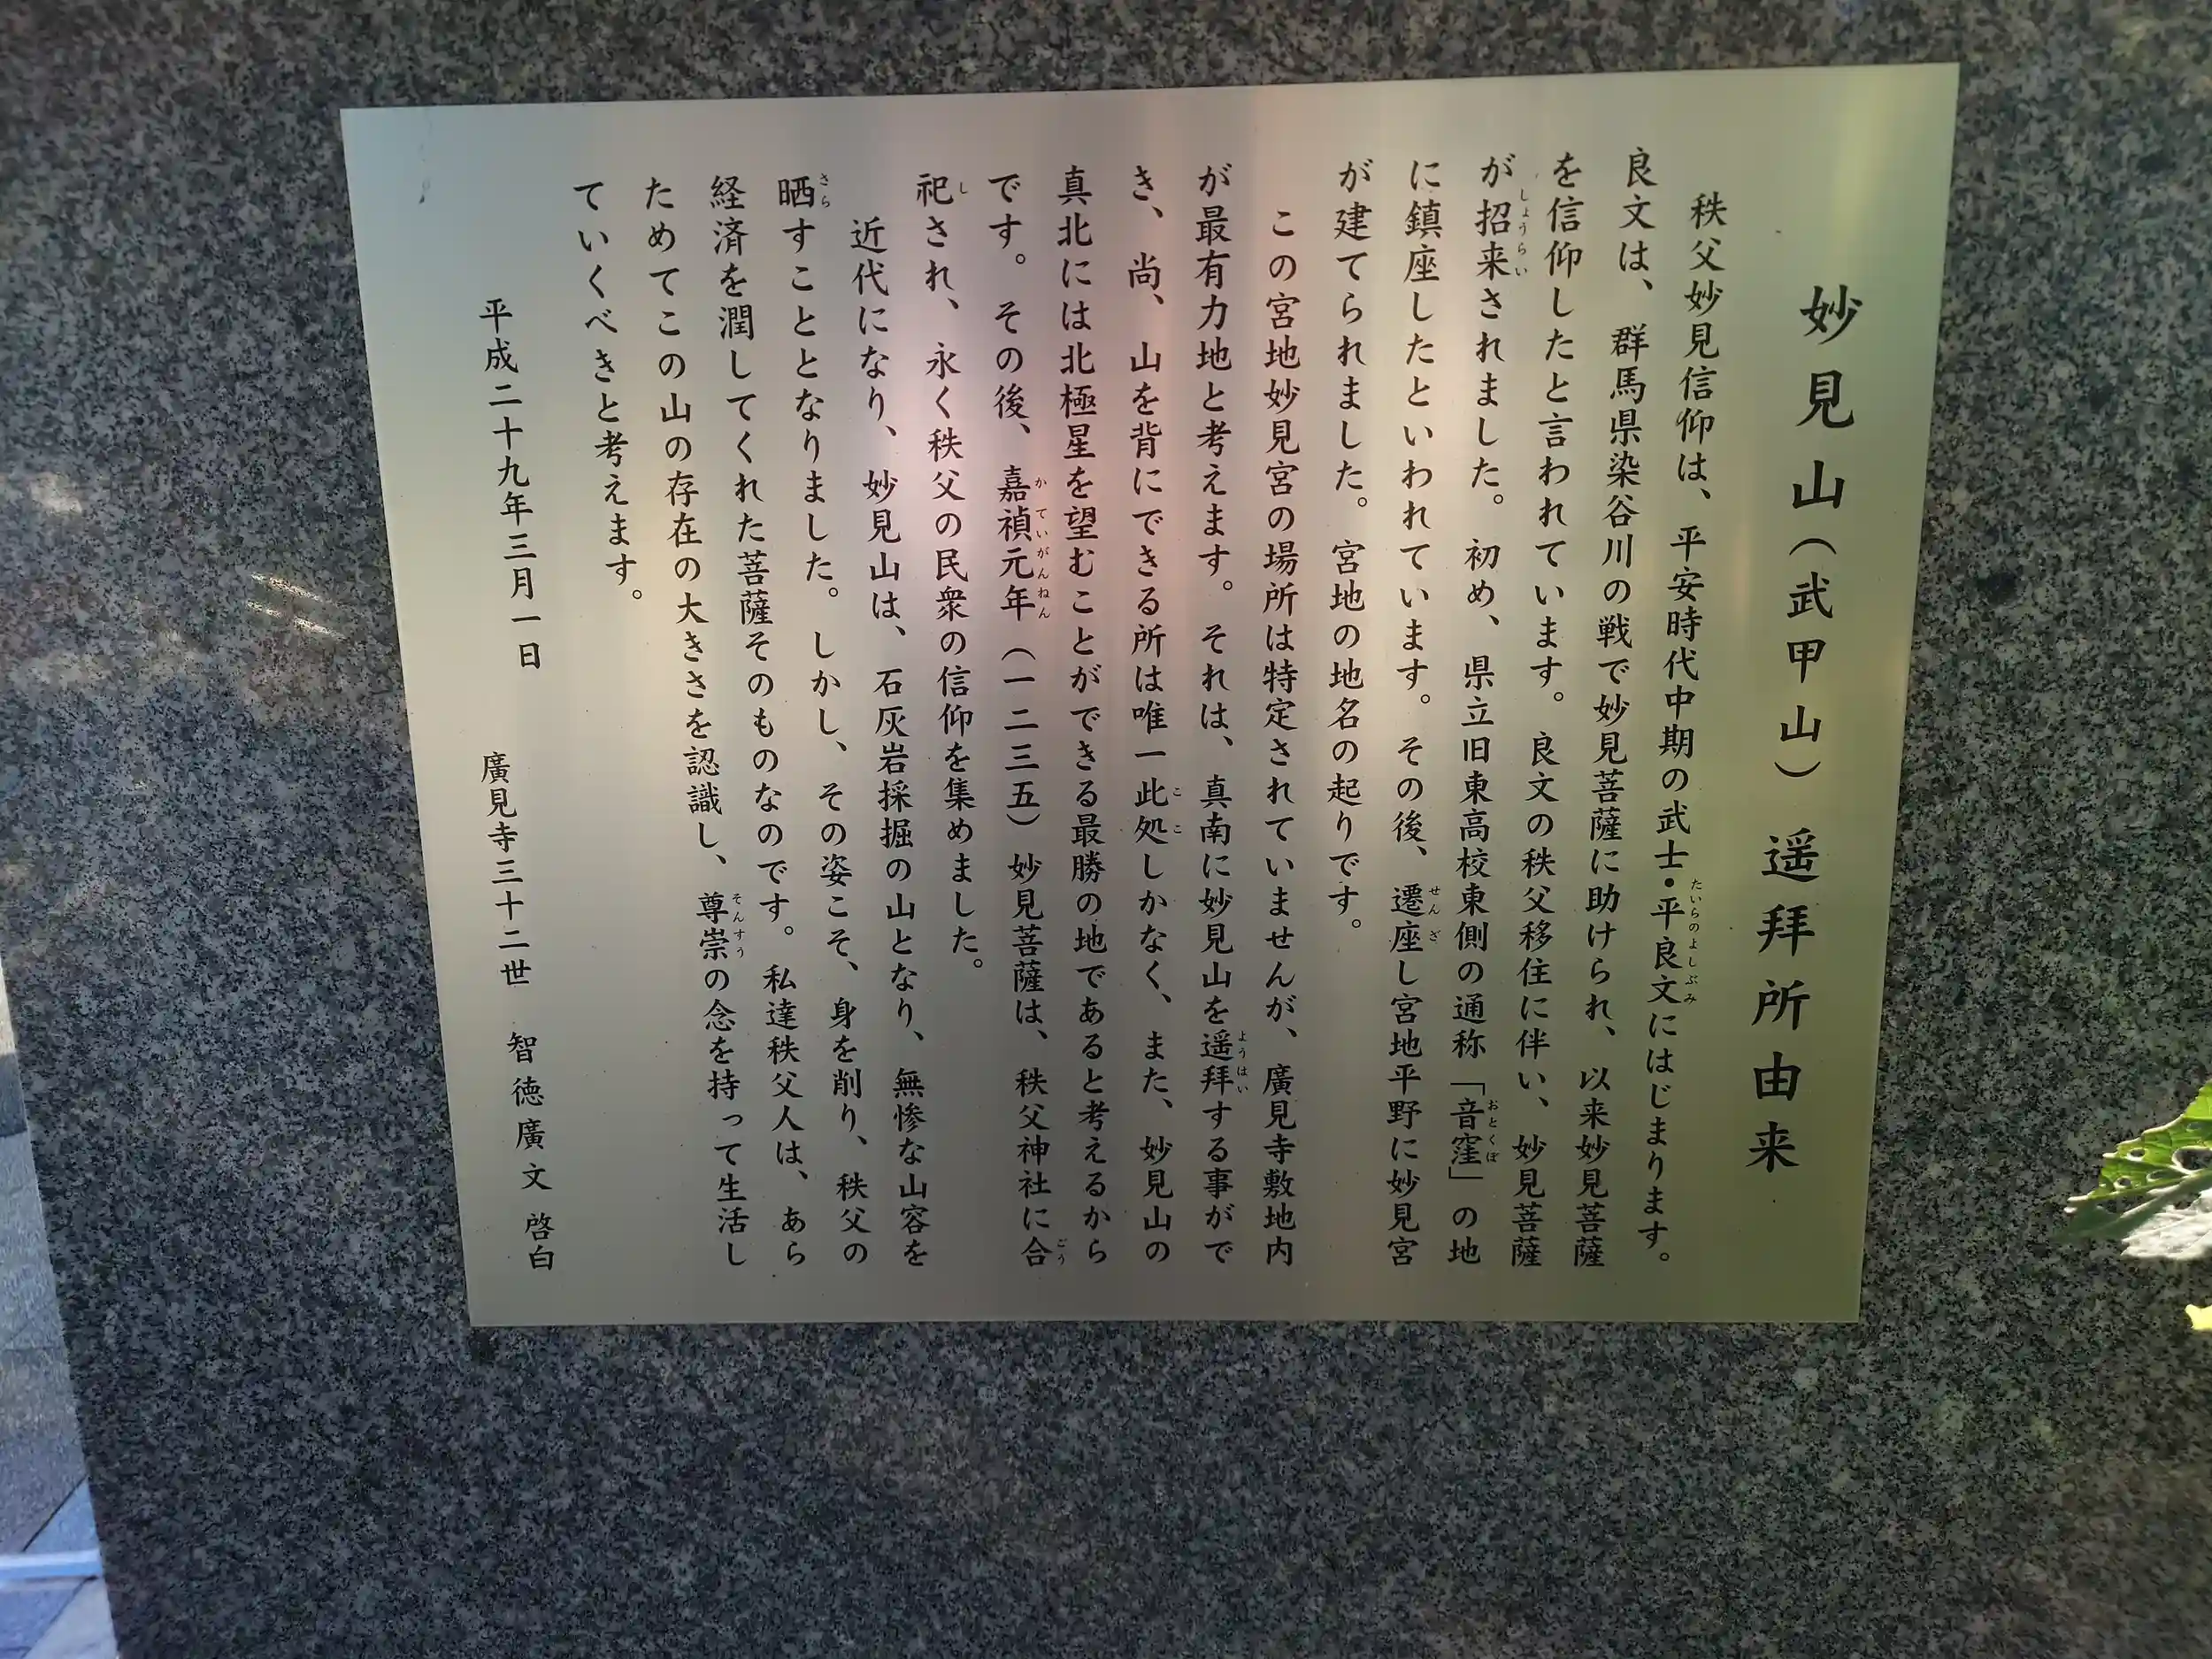 妙見山（武甲山）遥拝所由来
秩父妙見信仰は、平安時代中期の武士・平良文にはじまります。
良文は、群馬県染谷川の戦で妙見菩薩に助けられ、以来妙見菩薩
を信仰したと言われています。良文の秩父移住に伴い、妙見菩薩
が招来されました。初め、県立旧東高校東側の通称「音窪」の地
に鎮座したといわれています。その後、遷座し宮地平野に妙見宮
が建てられました。宮地の地名の起りです。
この宮地妙見宮の場所は特定されていませんが、廣見寺敷地内
が最有力地と考えます。それは、真南に妙見山を遥拝する事がで
き、尚、山を背にできる所は唯一此処しかなく、また、妙見山の
真北には北極星を望むことができる最勝の地であると考えるから
です。その後、嘉禎元年（一二三五）妙見菩薩は、秩父神社に合
祀され、永く秩父の民衆の信仰を集めました。
近代になり、妙見山は、石灰岩採掘の山となり、無惨な山容を
晒すこととなりました。しかし、その姿こそ、身を削り、秩父の
経済を潤してくれた菩薩そのものなのです。私達秩父人は、あら
ためてこの山の存在の大きさを認識し、尊崇の念を持って生活し
ていくべきと考えます。
平成二十九年三月一日　廣見寺三十二世　智徳廣文　啓白